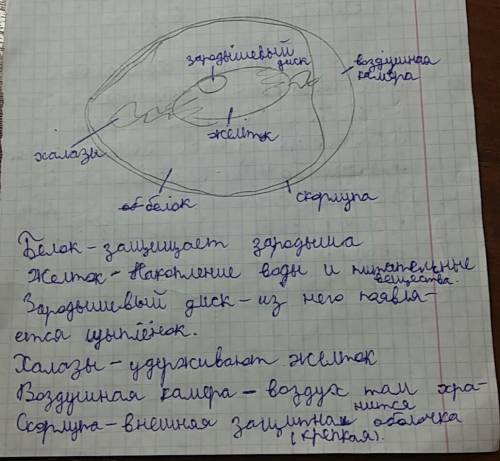 зародышевый
диск
воздушная
камера
желток
халазы
белок
скорлупа
Белок - защищает зародыша
Желток - накопление воды и питательные
вещества.
Зародышевый диск - из него появля-
ется цыплёнок.
Халазы - удерживают желток
Воздушная камера - воздух там хра-
нится
Скорлупа - внешняя защитная оболочка
(крепкая).